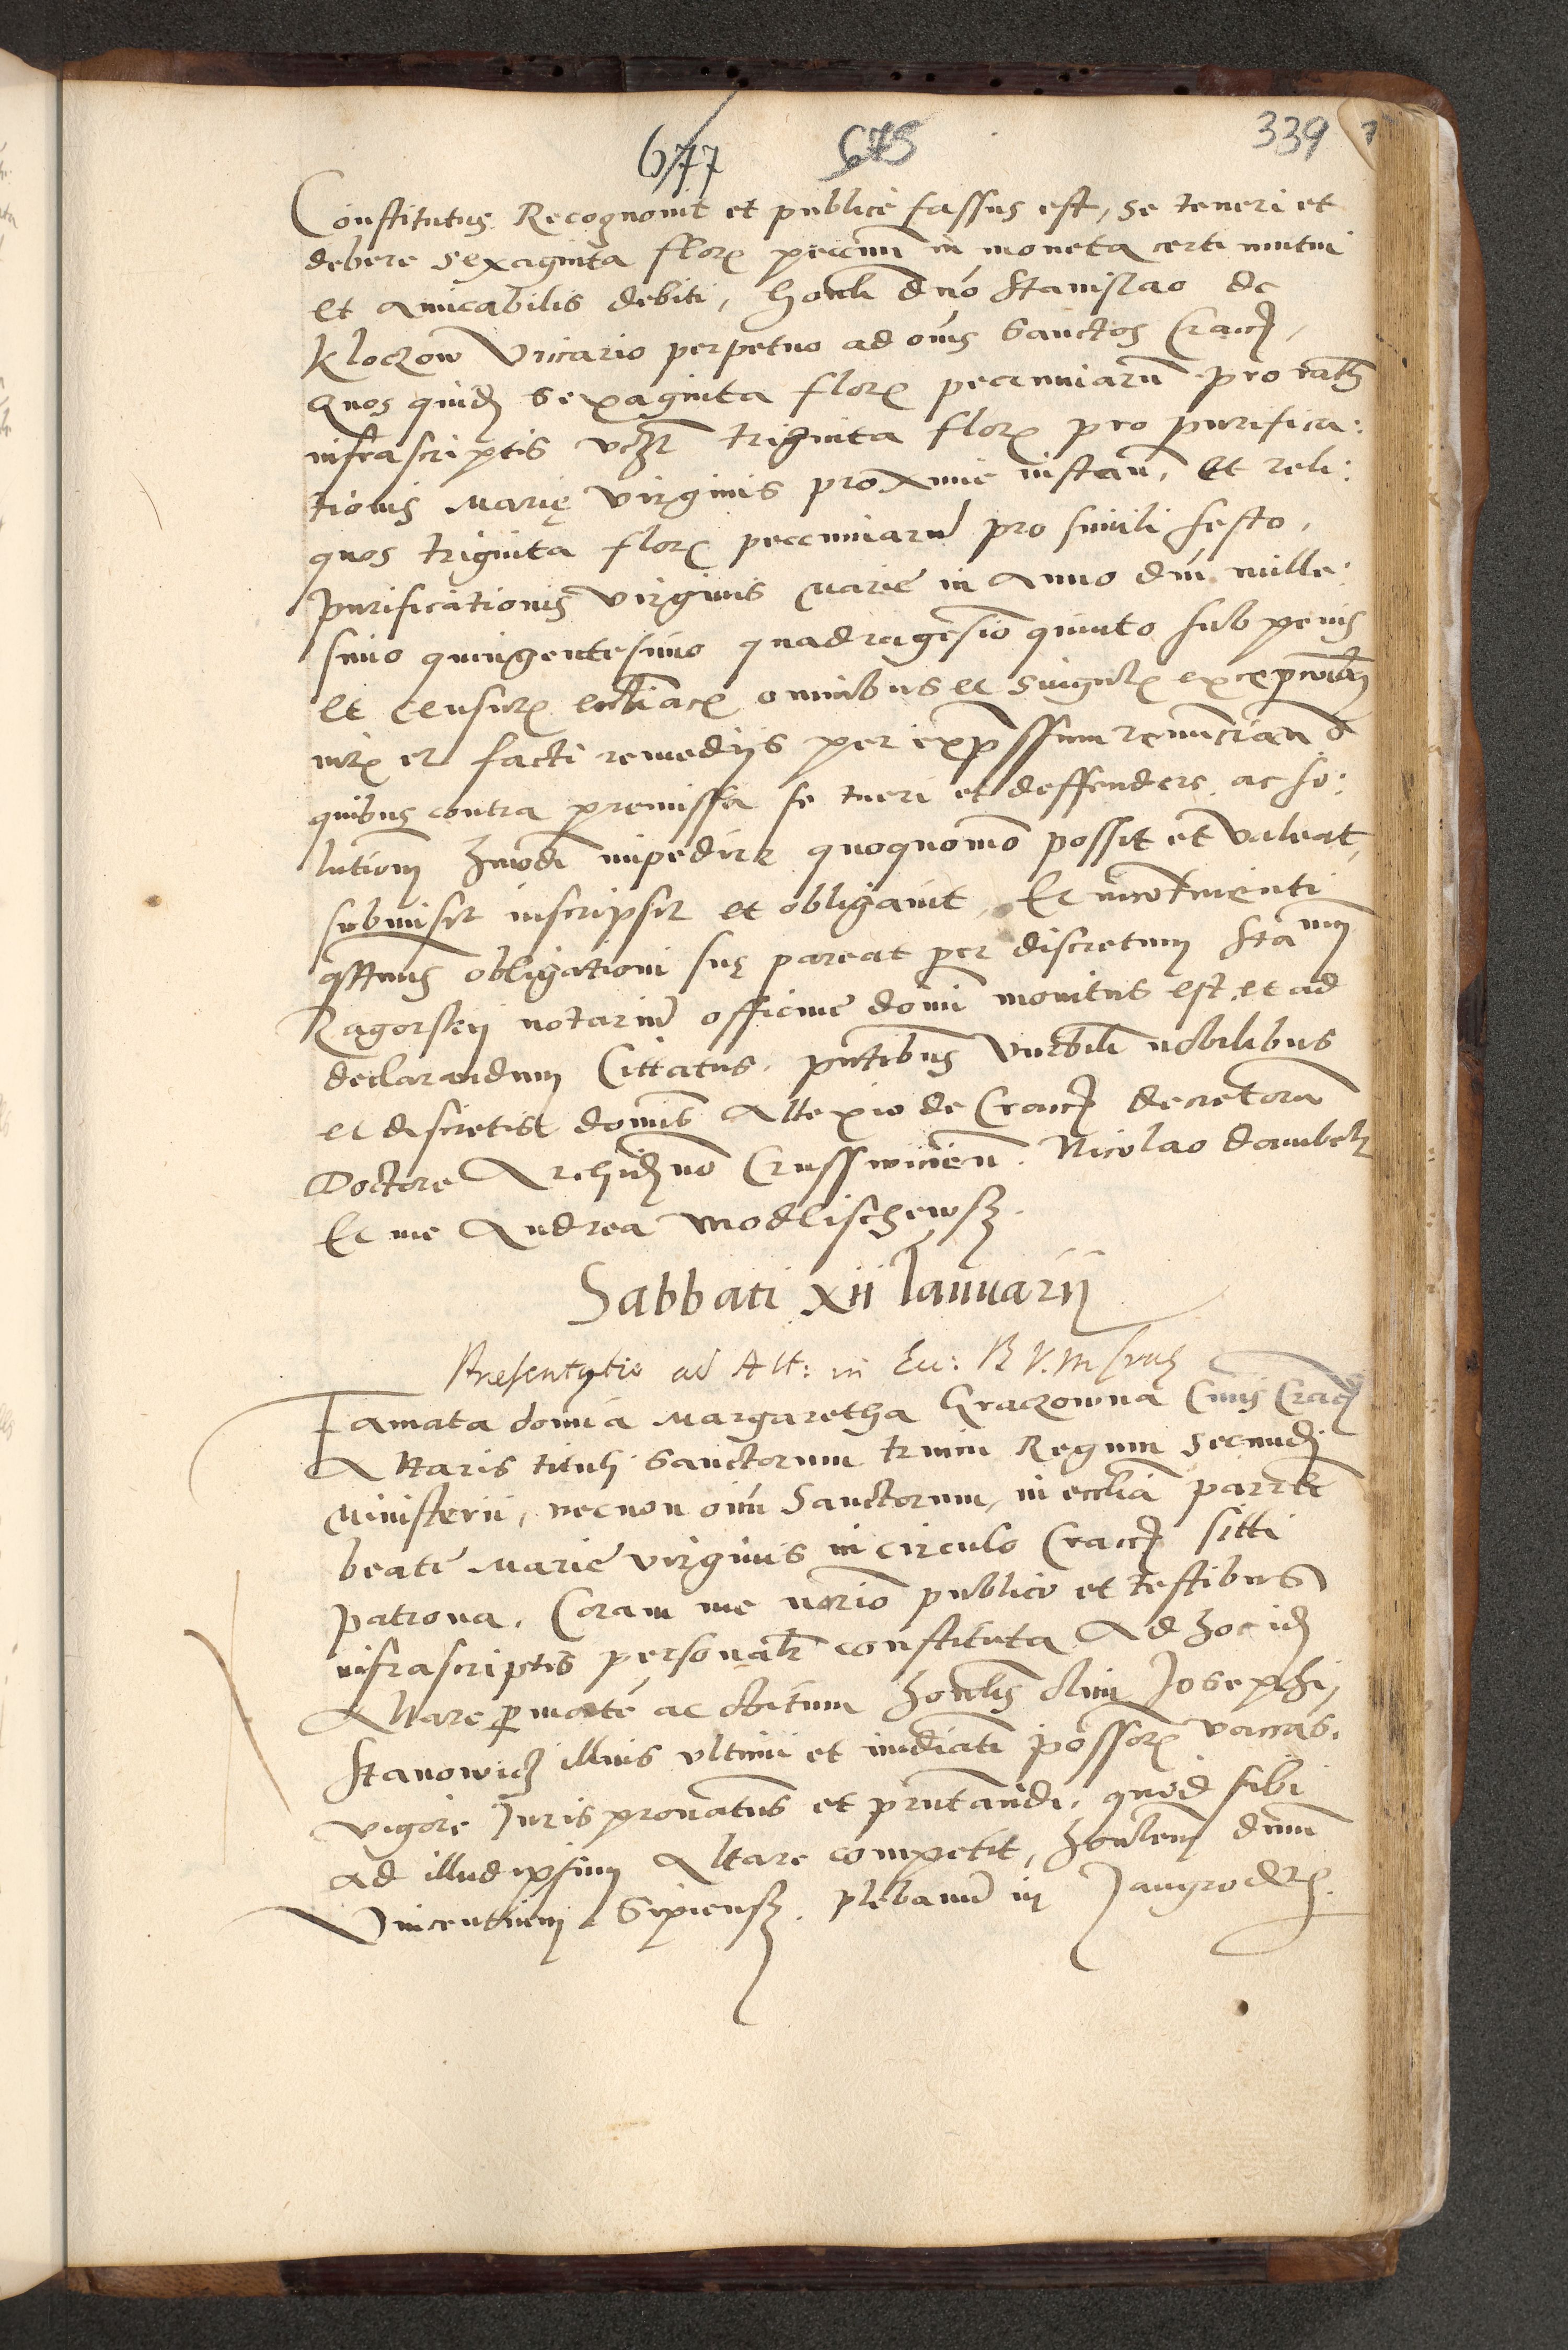 677 675 339
Constitutus Recognovit et publice fassus est, se teneri et
debere sexaginta flor pecun in moneta certi mutui
et amicabilis debiti, honli dno Stanislao de
Kloczow Vicario perpetuo ad omes Sanctos Cracov,
quos quid sexaginta flor pecuniarum pro ratis
infrascriptis vczt triginta flor pro purifica:
tionis Marię virginis proxime instan, et reli:
quos triginta flor peccuniarum pro simili festo,
purificationis virginis Marie in Anno dni mille:
simo quingentesimo quadragesimo quinto sub penis
et censur eccliac omnibus et singulr excepcoibus
iur et facti remedijs per expssum renuncian
quibus contra premissa se tueri et deffendere ac so:
lutionem hmodi impedire quoquomo possit et valeat,
submisit inscripsit et obligavit, Et incontinenti
qtenus obligationi sue pareat per discretum Stanm
Ragorskij notarium officii domi monitus est et ad
declarandum Cittatus, pntibus Vnerbili nobilibus
et discretis dominis Allexio de Cracov decretorum
Doctore Archidno Crusswicien, Nicolao dambsky
Et me Andrea Modlischewsky.
Sabbati xii Januarij
Presentatio ad Alt: in Ecc: B V. M Crac
Famata domina Margaretha Graczowna Civis Cracov
Altaris tituli Sanctorum trium Regum secundi
Ministerii, necnon oium Sanctorum, in ecclia parrli
beate Marie virginis in circulo Cracov sitti
patrona, Coram me notario publico et testibus
infrascriptis personalr constituta Ad hoc id
Altare p morte ac obitum honlis olim Josephi,
Stanowicz illius ultimi et imediati possor vacans,
vigore Juris pronatus et pntandi, quod sibi
ad illud ipsum Altare competit, honlem dnum
Vincentium Sipiensky, plebanum in Jangrod